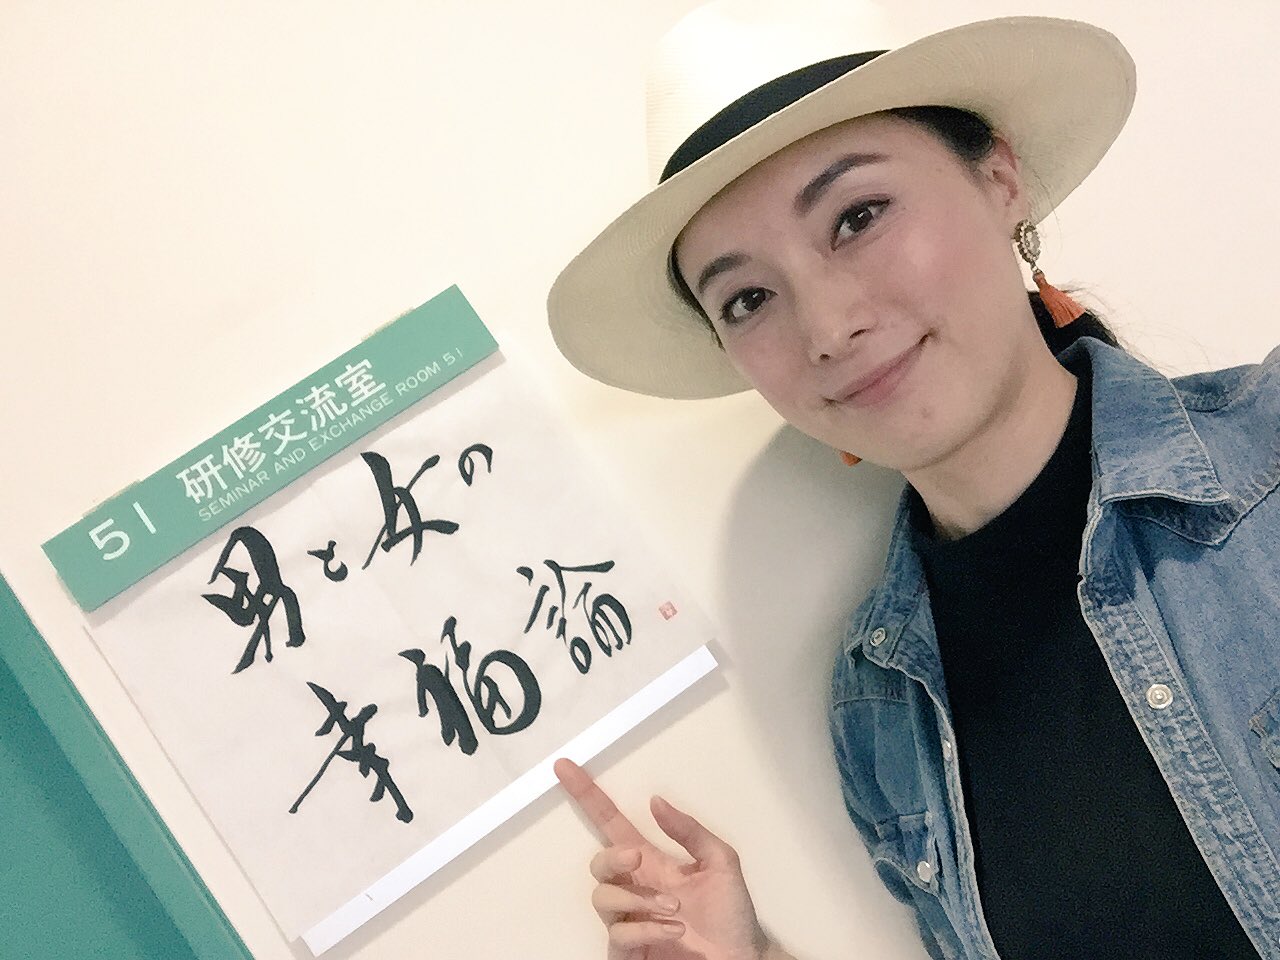 51 研修交流室
SEMINAR AND EXCHANGE ROOM 51
男と女の
幸福論